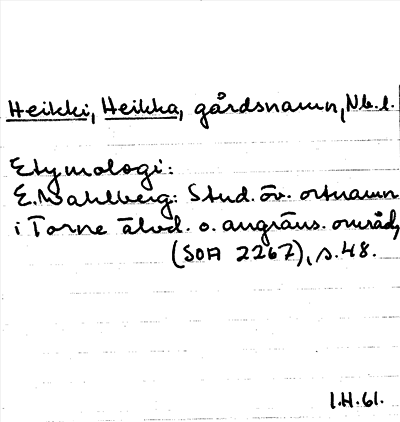 Heikki, Heikka, gårdsnamn, Nb. l.
Etymologi:
E. Wahlberg: Stud. öv. ortnamn
i Torne älvd. o. angräns. områd,
(SOA 2267), s. 48.
I.H. 61.